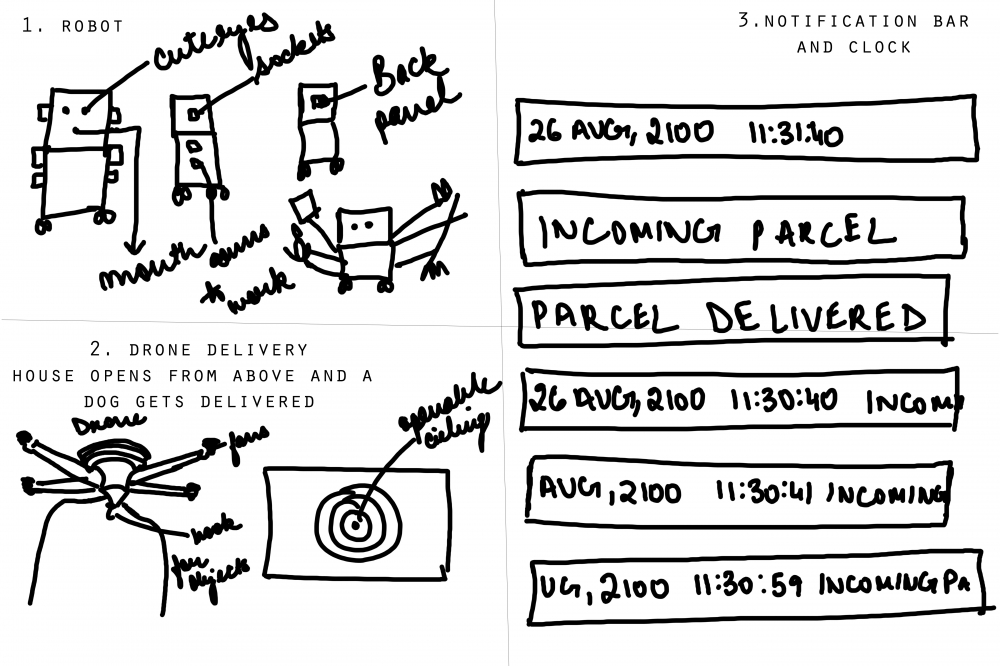 1. ROBOT
cuteeyes
sockets
Back
panel
mouth
arms
to
work
2. DRONE DELIVERY
HOUSE OPENS FROM ABOVE AND A
DOG GETS DELIVERED
Drone
fans
hook
for
objects
openable
cieling
3.NOTIFICATION BAR
AND CLOCK
26 AUG, 2100 11:31:40
INCOMING PARCEL
PARCEL DELIVERED
26 AUG, 2100 11:30:40 INCOM
AUG, 2100 11:30:41 INCOMING
UG, 2100 11:30:59 INCOMING PA